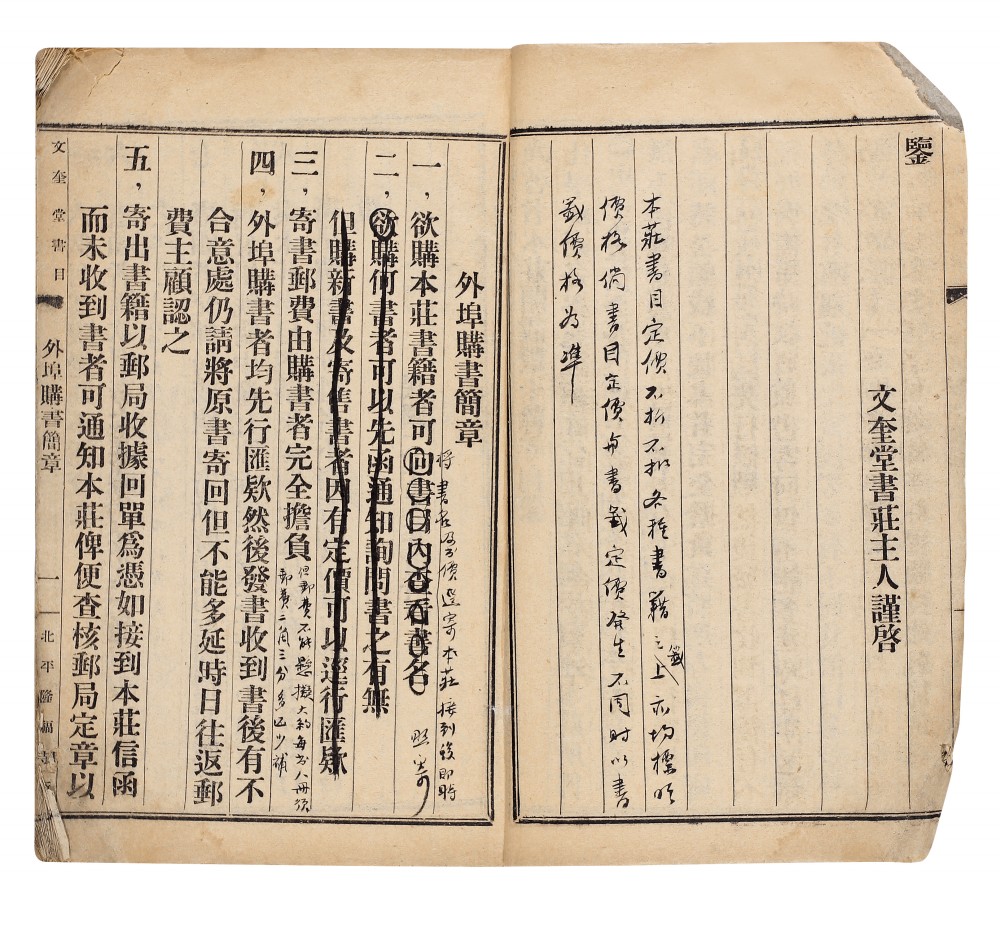 鑒
文奎堂書莊主人謹啓
本莊書目定價不折不扣各種書籍之籤上亦均標明
價格倘書目定價与書籤定價發生不同時以書
籤價格為準
外埠購書簡章
一，欲購本莊書籍者可向書目內查看書名
將書名及書價逕寄本莊接到後即時
照寄
二，欲購何書者可以先函通知詢問書之有無
但購新書及寄售書者因有定價可以逕行匯欵
三，寄書郵費由購書者完全擔負
但郵費不能懸擬大約每書八冊須
郵費二角三分多退少補
四，外埠購書者均先行匯欵然後發書收到書後有不
合意處仍請將原書寄回但不能多延時日往返郵
費主顧認之
五，寄出書籍以郵局收據回單爲憑如接到本莊信函
而未收到書者可通知本莊俾便查核郵局定章以
文奎堂書目
外埠購書簡章
一
北平隆福